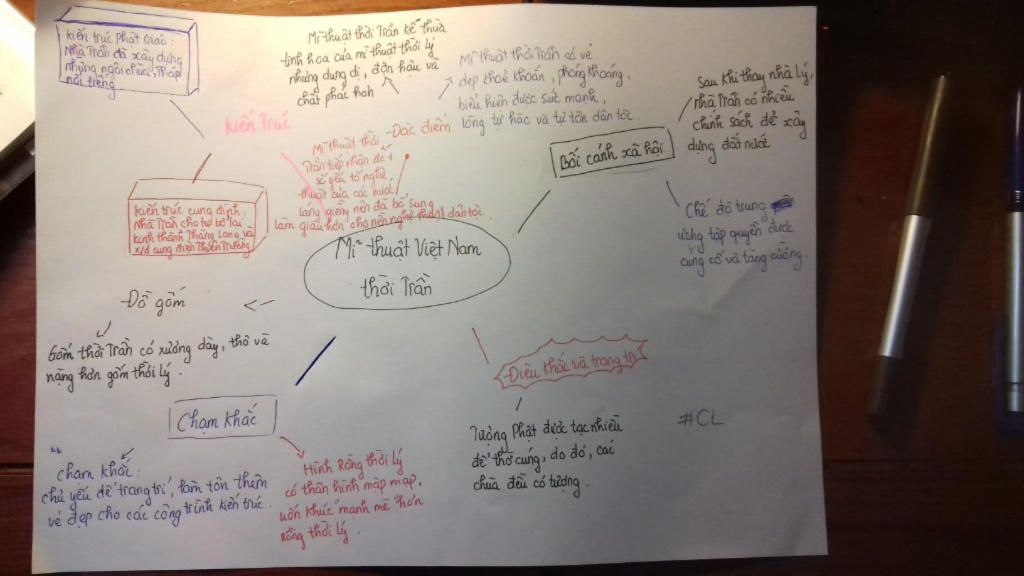 Kiến trúc Phật Giáo:
Nhà Trần đã xây dựng
những ngôi chùa, Tháp
nổi tiếng
Mĩ thuật thời Trần kế thừa
tinh hoa của mĩ thuật thời Lý
nhưng dung dị, đôn hậu và
chất phác hơn
Mĩ thuật thời Trần có vẻ
đẹp khoẻ khoắn, phóng khoáng,
biểu hiện được sức mạnh,
lòng tự hào và tự tôn dân tộc.
Sau khi thay nhà Lý,
nhà Trần có nhiều
chính sách để xây
dựng đất nước
Kiến Trúc
Đặc điểm
Mĩ thuật thời
Trần tiếp nhận đc 1
số yếu tố nghệ
thuật của các nước
láng giềng nên đã bổ sung
làm giàu hơn cho nền nghệ thuật dân tộc.
Bối cảnh xã hội
Kiến trúc cung đình:
Nhà Trần cho tu bổ lại
kinh thành Thăng Long và
x/d cung điện Thiên Trường
Chế độ trung
ương tập quyền được
củng cố và tăng cường.
Mĩ thuật Việt Nam
thời Trần
Đồ gốm
Gốm thời Trần có xương dày, thô và
nặng hơn gốm thời Lý.
Điêu khắc và trang trí
Tượng Phật được tạc nhiều
để thờ cúng, do đó, các
chùa đều có tượng.
#CL
Chạm khắc
Chạm khắc:
chủ yếu để trang trí, làm tôn thêm
vẻ đẹp cho các công trình kiến trúc.
Hình Rồng thời Lý
có thân hình mập mạp,
uốn khúc "mạnh mẽ" hơn
Rồng thời Lý.